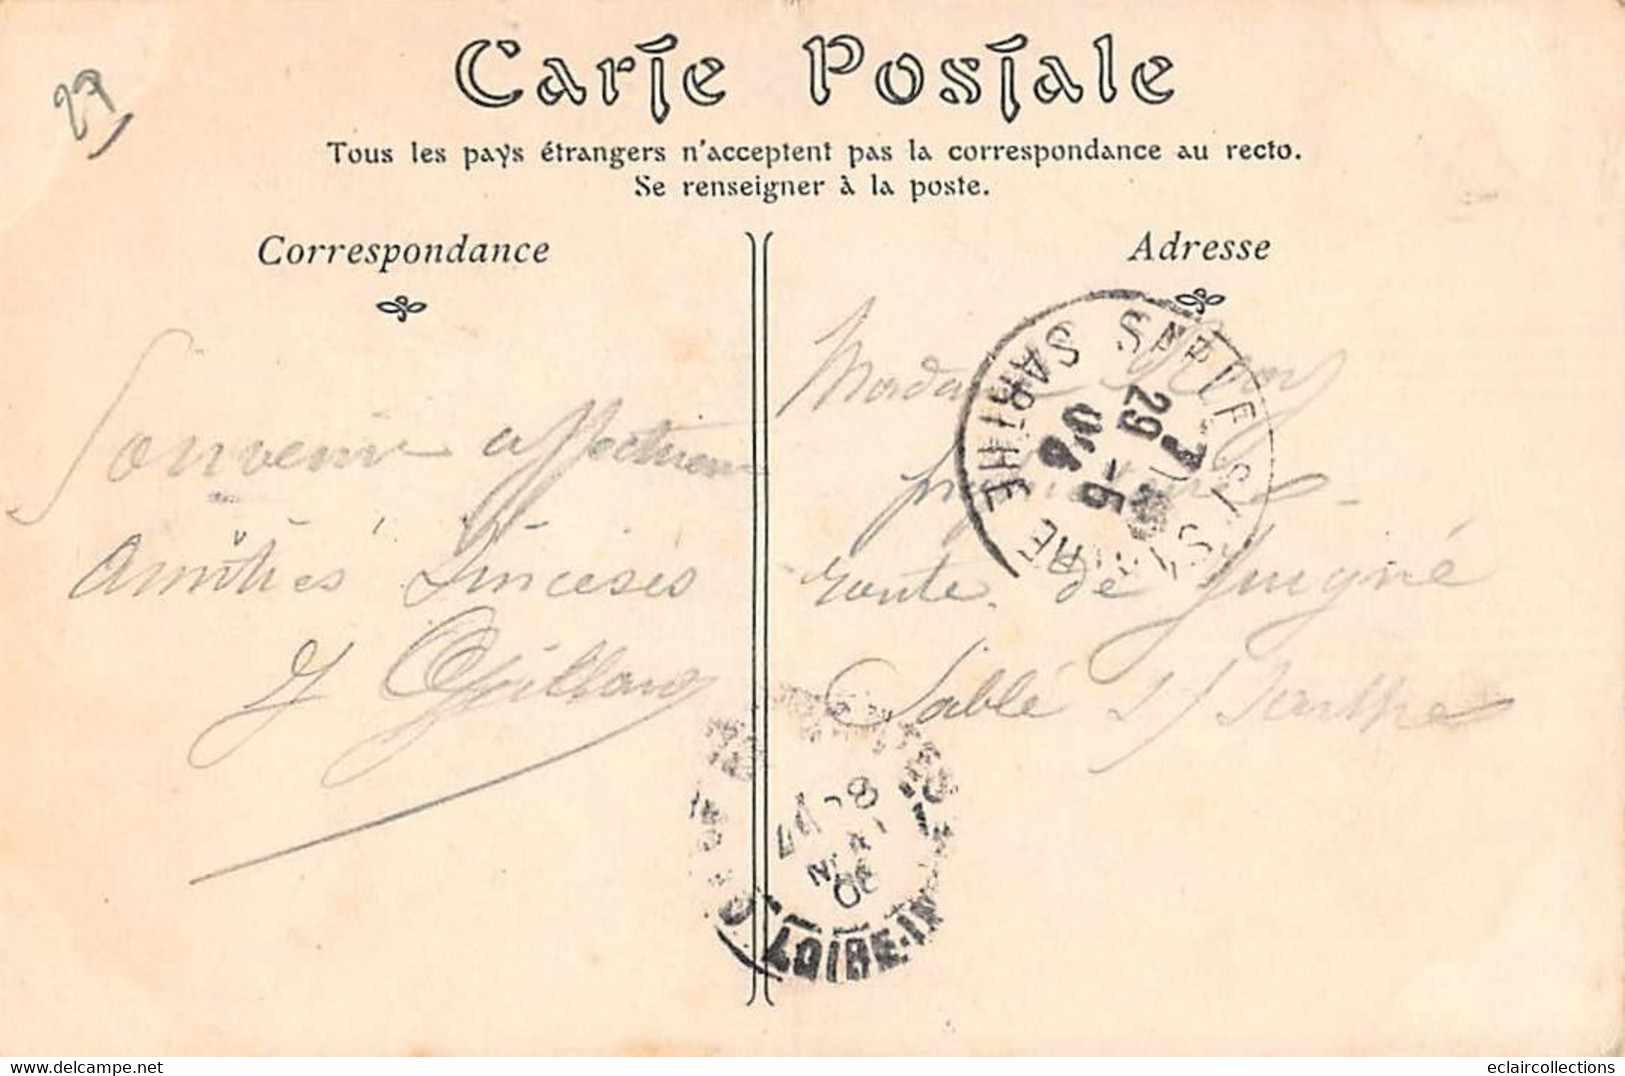 27
Carte Postale
Tous les pays étrangers n'acceptent pas la correspondance au recto.
Se renseigner à la poste.
Correspondance
Adresse
Souvenir affectueux
Amitiés Sincères
J Guillard
Madame
route de Juigné
Sablé s/ Sarthe
SABLÉ S/ SARTHE SARTHE
7
29 -5
06
LOIRE-IN
delcampe.net
eclaircollections